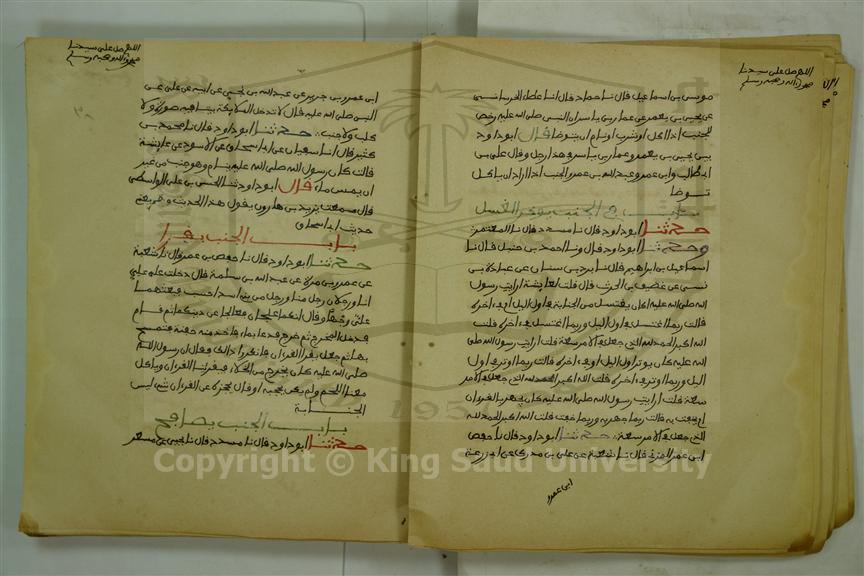 اللهم صل على سيدنا
محمد واله وصحبه وسلم
موسى بن اسماعيل قال نا حماد قال انا عطاء الخراساني
عن يحيى بن يعمر عن عمار بن ياسر ان النبي صلى الله عليه رخص
للجنب اذا اكل او شرب او نام ان يتوضا قال ابو داود
بين يحيى بن يعمر وعمار بن ياسر في هذا رجل وقال علي بن
ابي طالب وابن عمر وعبد الله بن عمرو الجنب اذا اراد ان ياكل
توضا
باب في الجنب يوخر الغسل
حدثنا ابو داود قال نا مسدد قال نا المعتمر
وحدثنا ابو داود قال ونا احمد بن حنبل قال نا
اسماعيل بن ابراهيم قال نا برد بن سنان عن عبادة بن
نسي عن غضيف بن الحرث قال قلت لعايشة ارايت رسول
الله صلى الله عليه اكان يغتسل من الجنابة في اول اليل او في اخره
قالت ربما اغتسل في اول اليل وربما اغتسل في اخره قلت
الله اكبر الحمد لله الذي جعل في الامر سعة قلت ارايت رسول الله صلى
الله عليه كان يوتر اول اليل او في اخره قالت ربما اوتر في اول
اليل وربما اوتر في اخره قلت الله اكبر الحمد لله الذي جعل في الامر
سعة قلت ارايت رسول الله صلى الله عليه كان يجهر بالقران
او يخفت به قالت ربما جهر به وربما خفت قلت الله اكبر الحمد لله
الذي جعل في الامر سعة حدثنا ابو داود قال نا حفص
ابن عمر النمري قال نا شعبة عن علي بن مدرك عن ابي زرعة
ابن عمرو
اللهم صل على سيدنا
محمد واله وصحبه وسلم
ابن عمرو بن جرير عن عبد الله بن نجي عن ابيه عن علي عن
النبي صلى الله عليه قال لا تدخل الملايكة بيتا فيه صورة ولا
كلب ولا جنب حدثنا ابو داود قال نا محمد بن
كثير قال انا سفيان عن ابي اسحاق عن الاسود عن عايشة
قالت كان رسول الله صلى الله عليه ينام وهو جنب من غير
ان يمس ماء قال ابو داود نا الحسن بن علي الواسطي
قال سمعت يزيد بن هارون يقول هذا الحديث وهم يعني
حديث ابي اسحاق
باب الجنب يقرا
حدثنا ابو داود قال نا حفص بن عمر قال نا شعبة
عن عمرو بن مرة عن عبد الله بن سلمة قال دخلت على علي
انا ورجلان رجل منا ورجل من بني اسد احسب فبعثهما
علي وجها وقال انكما علجان فعالجا عن دينكما ثم قام
فدخل المخرج ثم خرج فدعا بماء فاخذ منه حفنة فتمسح
بها ثم جعل يقرا القران فانكروا ذلك فقال ان رسول الله
صلى الله عليه كان يخرج من الخلاء فيقرئنا القران وياكل
معنا اللحم ولم يكن يحجبه او قال يحجزه عن القران شي ليس
الجنابة
باب الجنب يصافح
حدثنا ابو داود قال نا مسدد قال نا يحيى عن مسعر
Copyright © King Saud University
195